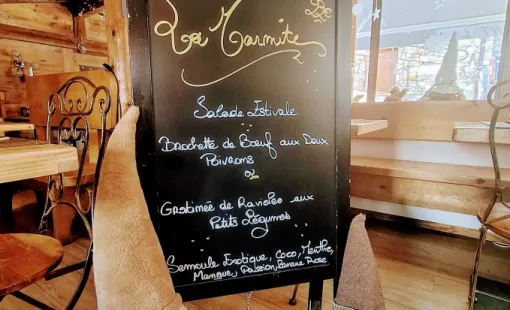 La Marmite
Salade Estivale
Brochette de Bœuf aux Doux
Poivrons
ou
Gratinée de Ravioles aux
Petits Légumes
Semoule Exotique, Coco, Menthe,
Mangue, Passion, Banane Rose